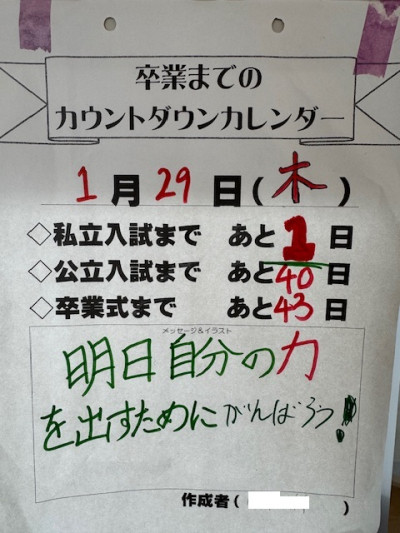 卒業までの
カウントダウンカレンダー
1月29日(木)
◇私立入試まで あと1日
◇公立入試まで あと40日
◇卒業式まで あと43日
メッセージ&イラスト
明日自分の力
を出すためにがんばろう!
作成者( )